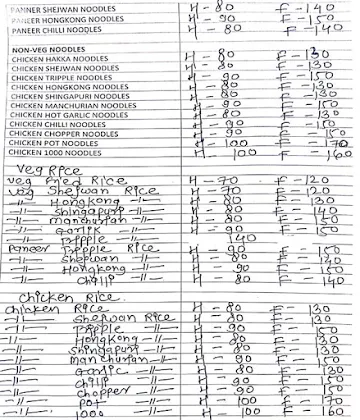 PANNER SHEJWAN NOODLES H - 80 F - 140
PANEER HONGKONG NOODLES H - 90 F - 150
PANEER CHILLI NOODLES H - 80 F - 140
NON-VEG NOODLES
CHICKEN HAKKA NOODLES H - 80 F - 130
CHICKEN SHEJWAN NOODLES H - 80 F - 130
CHICKEN TRIPPLE NOODLES H - 90 F - 150
CHICKEN HONGKONG NOODLES H - 80 F - 130
CHICKEN SHINGAPURI NOODLES H - 80 F - 130
CHICKEN MANCHURIAN NOODLES H - 90 F - 150
CHICKEN HOT GARLIC NOODLES H - 80 F - 130
CHICKEN CHILLI NOODLES H - 90 F - 150
CHICKEN CHOPPER NOODLES H - 90 F - 150
CHICKEN POT NOODLES H - 100 F - 170
CHICKEN 1000 NOODLES H - 100 F - 160
Veg Rice
veg Fried Rice H - 70 F - 120
veg Shejwan Rice H - 70 F - 120
-11- Hongkong -11- H - 80 F - 130
-11- Shingapuri -11- H - 80 F - 140
-11- manchurian -11- H - 80 F - 150
-11- Garlik -11- H - 90 F -
-11- Tripple -11- 140
Paneer Tripple Rice H - 90 F - 150
-11- Shejwan -11- H - 80 F - 140
-11- Hongkong -11- H - 90 F - 150
-11- Chilli -11- H - 80 F - 140
Chicken Rice.
chihken Rice H - 80 F - 130
-11- Shejwan Rice H - 80 F - 130
-11- Tripple -11- H - 90 F - 150
-11- HongKong -11- H - 80 F - 130
-11- Shingapuri -11- H - 80 F - 130
-11- manchurian -11- H - 90 F - 150
-11- Garlic -11- H - 80 F - 130
-11- chilli -11- H - 90 F - 150
-11- chopper -11- H - 90 F - 150
-11- pot -11- H - 100 F - 170
-11- 1000 -11- H - 100 F - 160